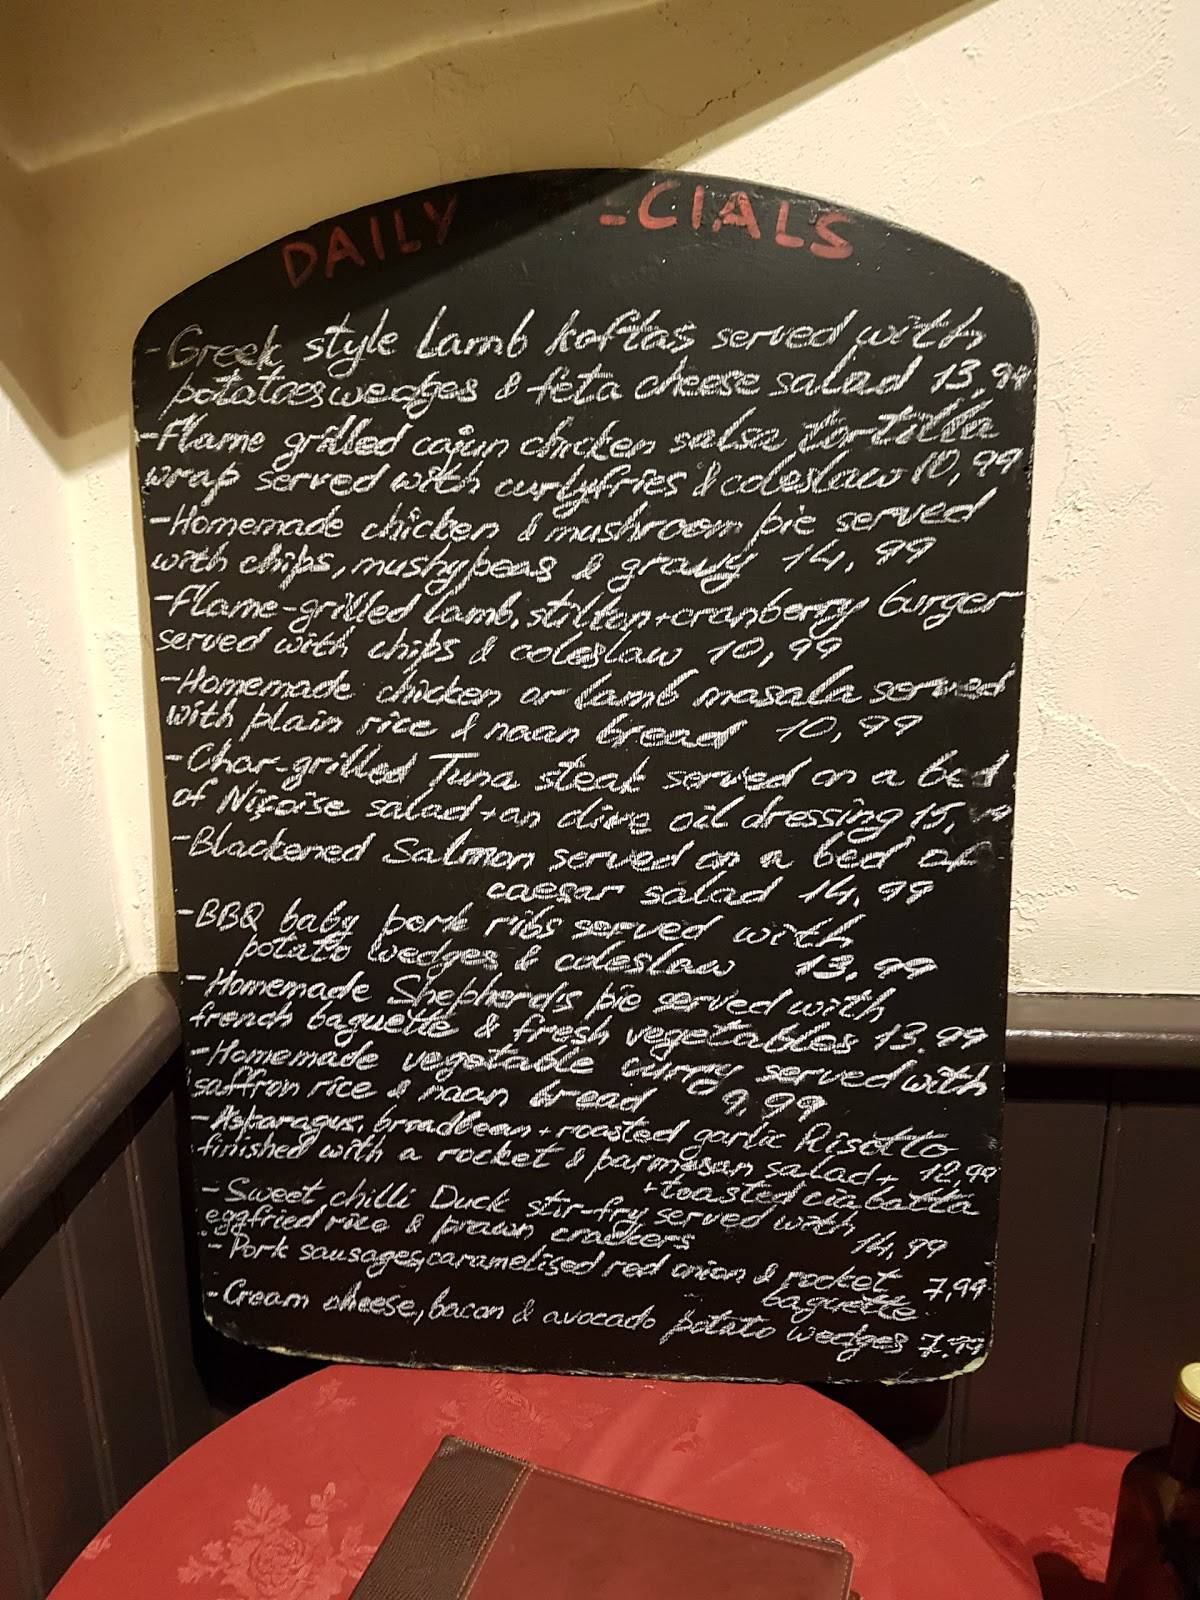 DAILY -CIALS
- Greek style Lamb koftas served with
potatoes wedges & feta cheese salad 13,99
- Flame grilled cajun chicken salsa tortilla
wrap served with curlyfries & coleslaw 10,99
- Homemade chicken & mushroom pie served
with chips, mushypeas & gravy 14,99
- Flame-grilled lamb, stilton + cranberry burger
served with chips & coleslaw 10,99
- Homemade chicken or lamb masala served
with plain rice & naan bread 10,99
- Char-grilled Tuna steak served on a bed
of Niçoise salad + an olive oil dressing 15,
- Blackened Salmon served on a bed of
caesar salad 14,99
- BBQ baby pork ribs served with
potato wedges & coleslaw 13,99
- Homemade Shepherds pie served with
french baguette & fresh vegetables 13.99
- Homemade vegetable curry served with
saffron rice & naan bread 9,99
- Asparagus, broadbean + roasted garlic Risotto
finished with a rocket & parmesan salad + 12,99
+ toasted ciabatta
- Sweet chilli Duck stir-fry served with
eggfried rice & prawn crackers 14,99
- Pork sausages, caramelised red onion & rocket 7,99
baguette
- Cream cheese, bacon & avocado potato wedges 7.99